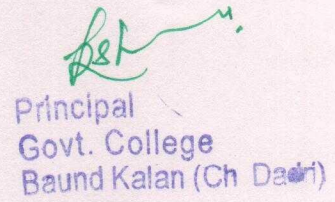 Principal
Govt. College
Baund Kalan (Ch Dadri)